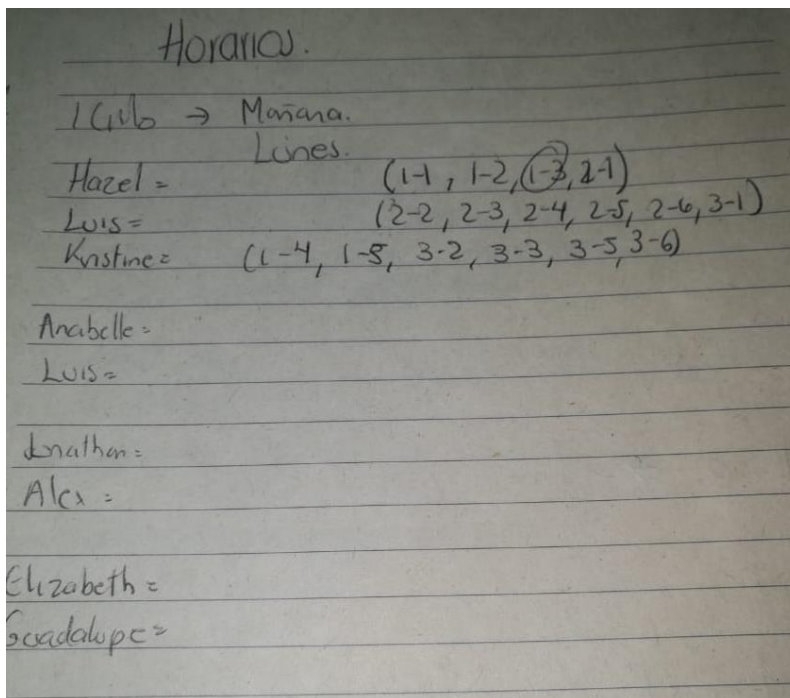 Horarios.
I Ciclo → Mañana.
Lunes.
Hazel = (1-1, 1-2, 1-3, 2-1)
Luis = (2-2, 2-3, 2-4, 2-5, 2-6, 3-1)
Kristine = (1-4, 1-5, 3-2, 3-3, 3-5, 3-6)
Anabelle =
Luis =
Jonathan =
Alex =
Elizabeth =
Guadalupe =